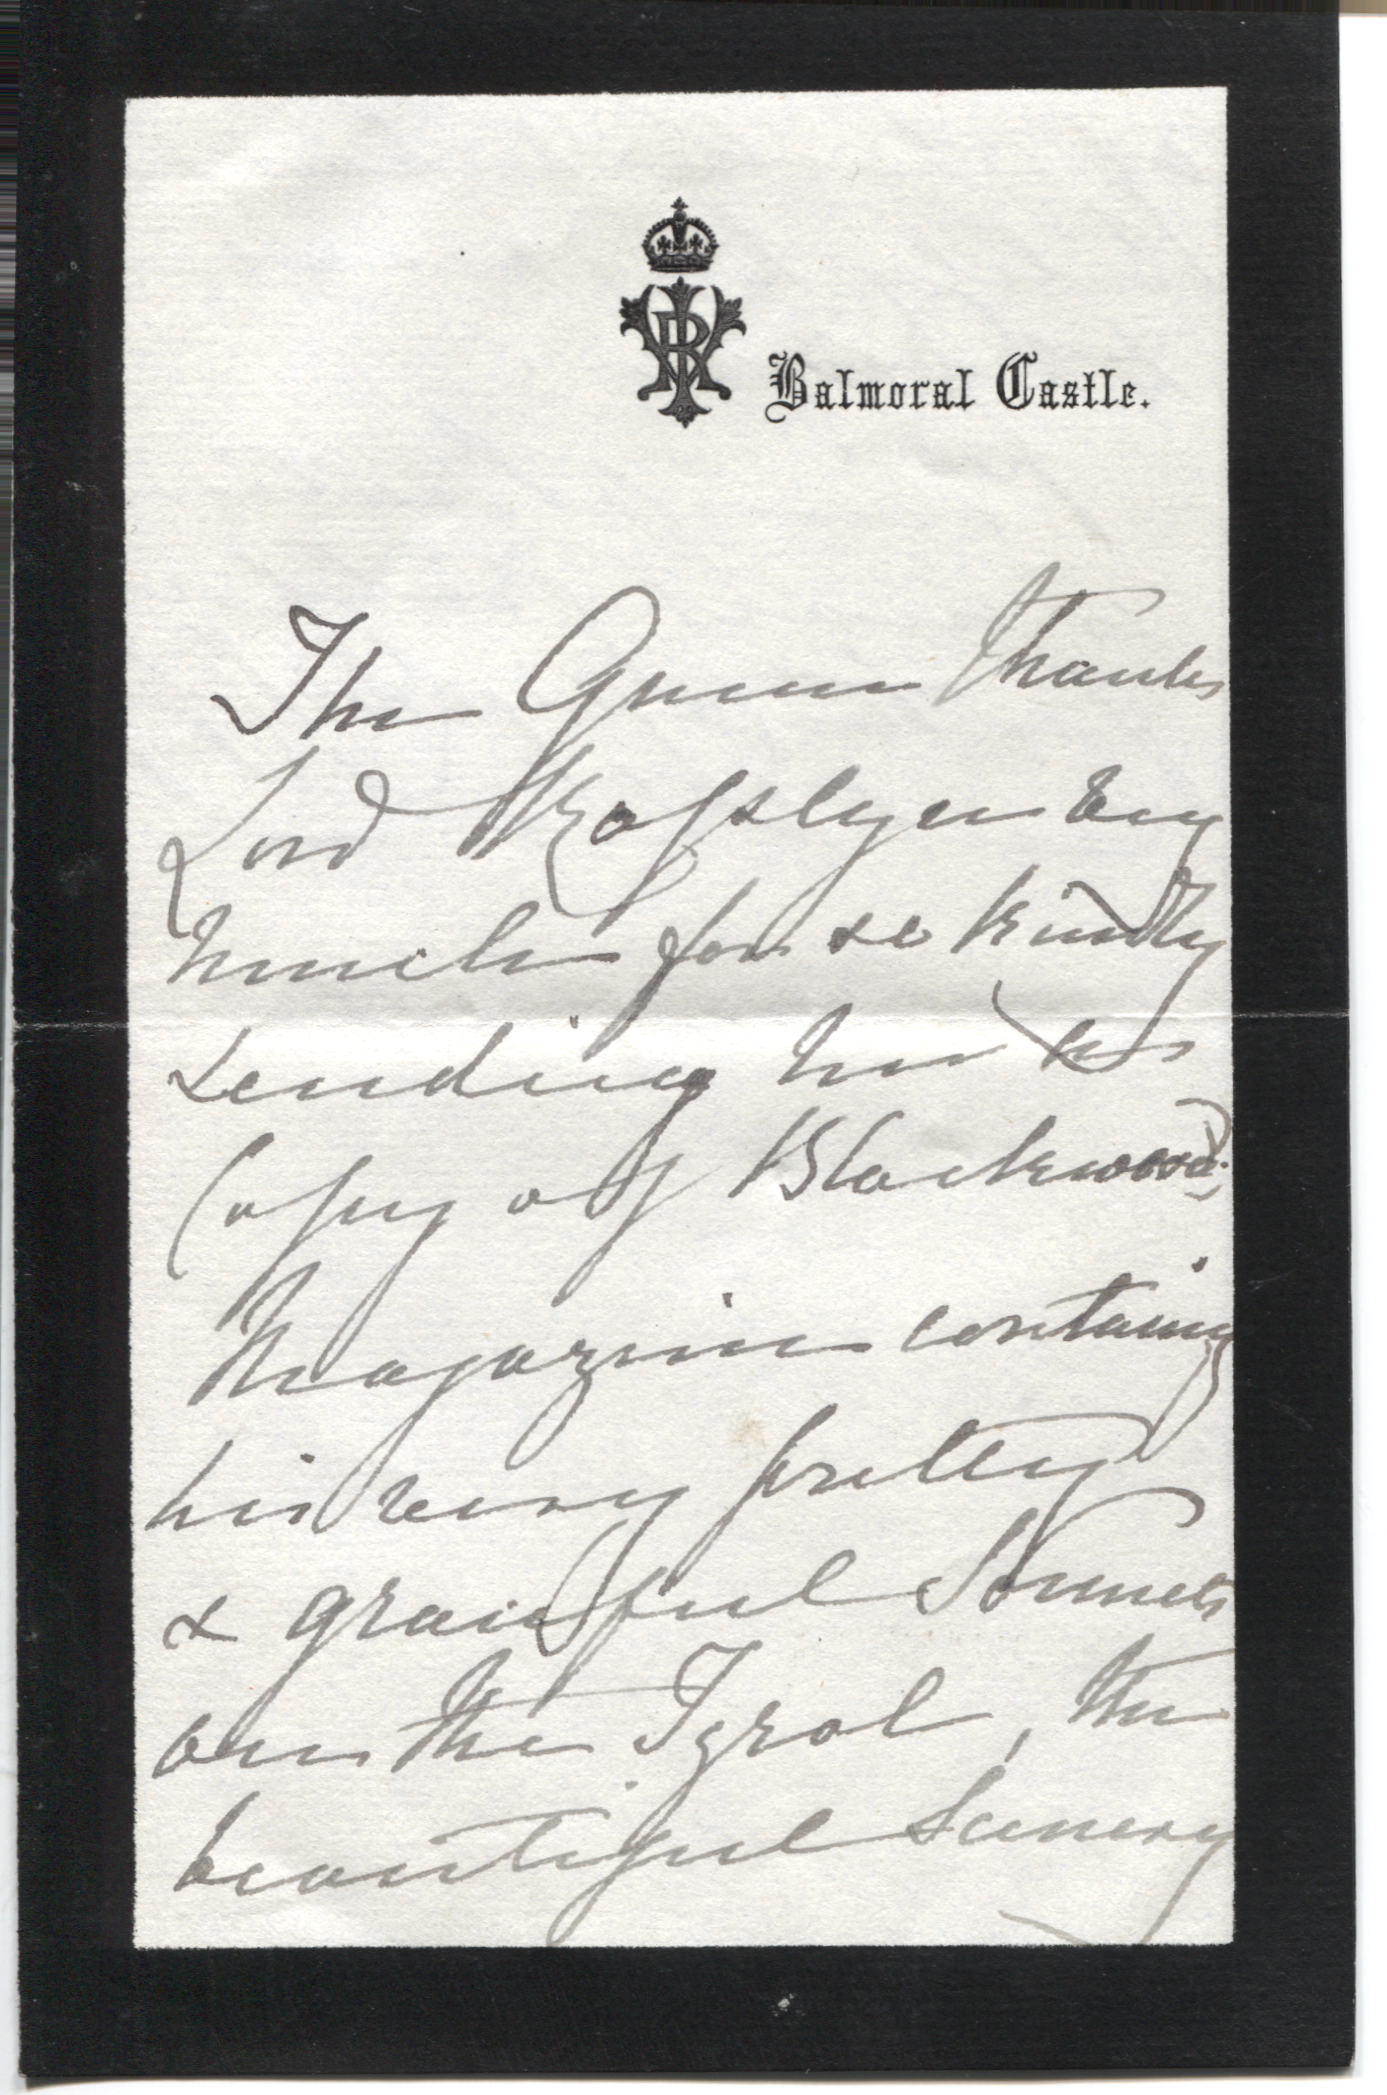 VRI
Balmoral Castle.
The Queen thanks
Lord Rosslyn very
much for so kindly
sending her his
Copy of Blackwood's
Magazine containing
his very pretty
& graceful Sonnets
on the Tyrol, the
beautiful Scenery